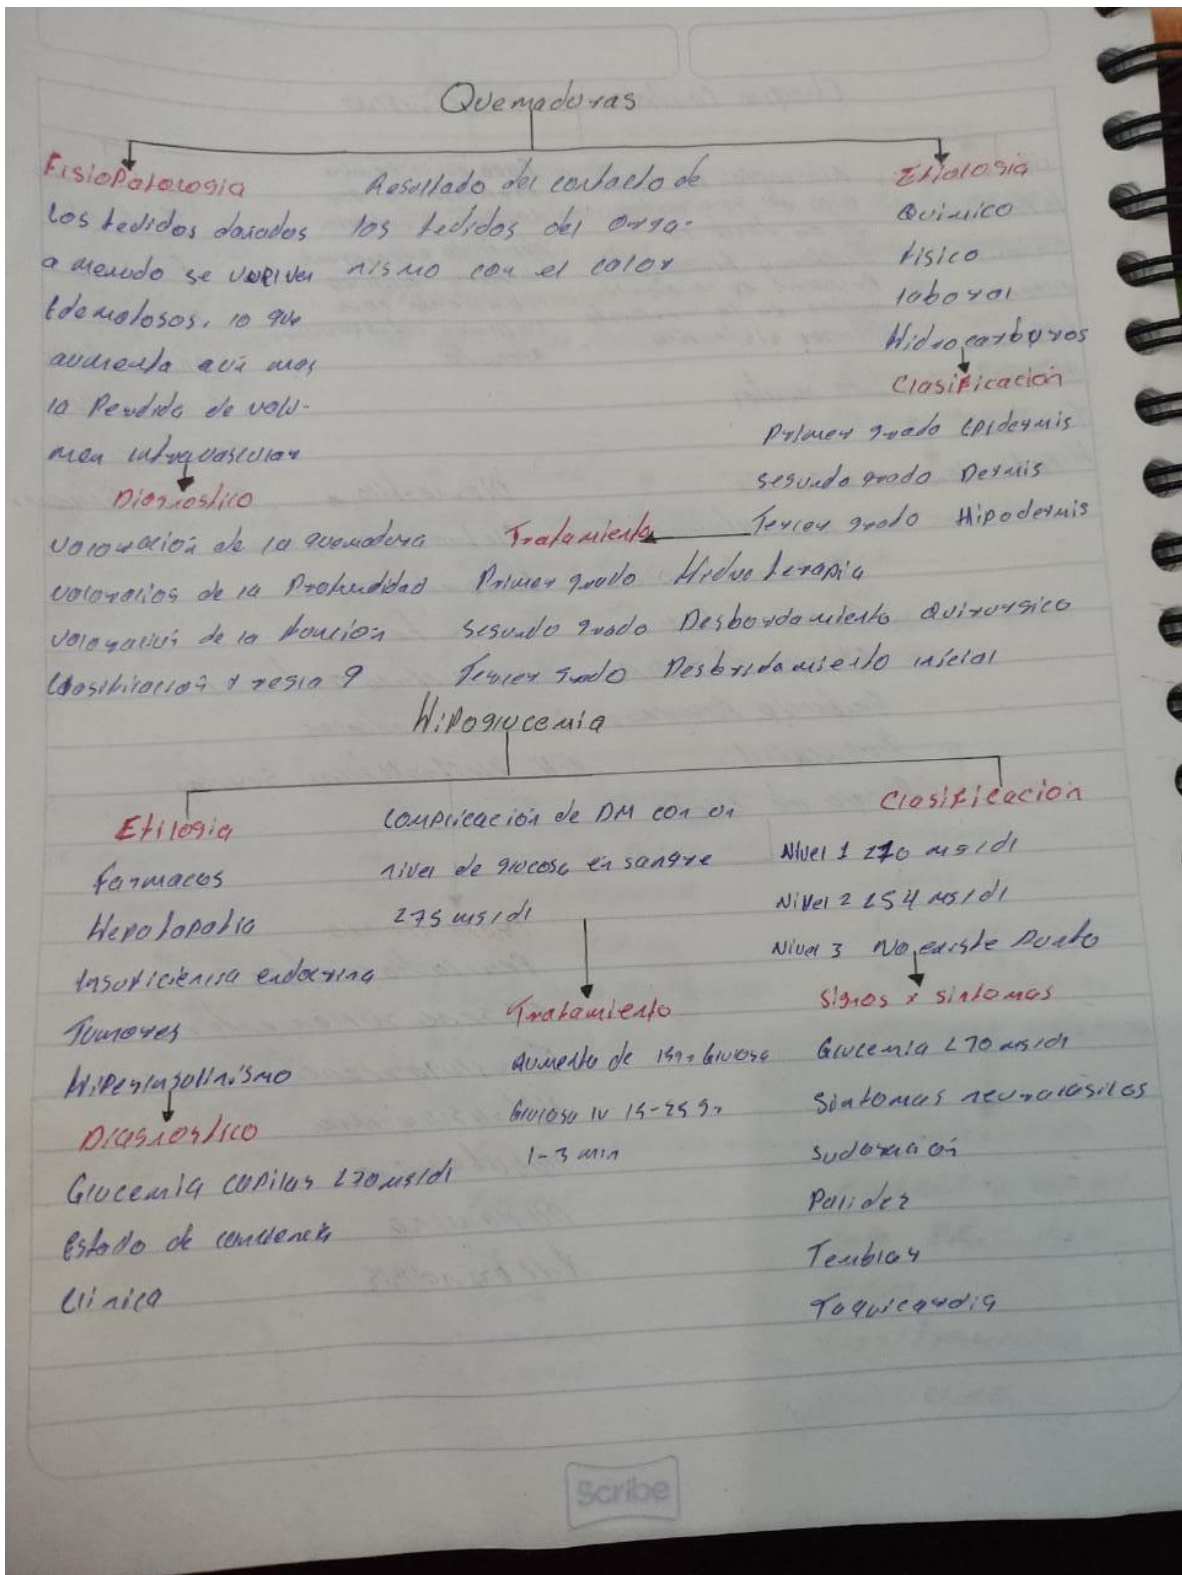 Quemaduras
Fisiopatologia
Los tedidos dañados
a menudo se vuelven
Edematosos, lo que
aumenta aún mas
la Perdida de volu-
men intravascular
Diagnostico
Valoración de la quemadura
valoración de la Profundidad
valoración de la función
Clasificación y regla 9
Resultado del contacto de
los tedidos del orga-
nismo con el calor
Etiologia
Quimico
Fisico
laboral
Hidrocarburos
Clasificación
Primer grado Epidermis
segundo grado Dermis
Tercer grado Hipodermis
Tratamiento
Primer grado Hidroterapia
Segundo grado Desbordamiento Quirurgico
Tercer grado Desbridamiento inicial
Hipoglucemia
Etilogia
Farmacos
Hepatopatia
Insuficiencia endocrina
Tumores
Hiperinsulinismo
Diagnostico
Glucemia capilar <70 mg/dl
Estado de conciencia
Clinica
Complicación de DM con un
nivel de glucosa en sangre
<75 mg/dl
Tratamiento
Aumento de 15gr Glucosa
Glucosa IV 15-25 gr
1-3 min
Clasificacion
Nivel 1 <70 mg/dl
Nivel 2 <54 mg/dl
Nivel 3 No existe Punto
Signos y sintomas
Glucemia <70 mg/dl
Sintomas
sudoración
Palidez
Temblor
Taquicardia
Scribe